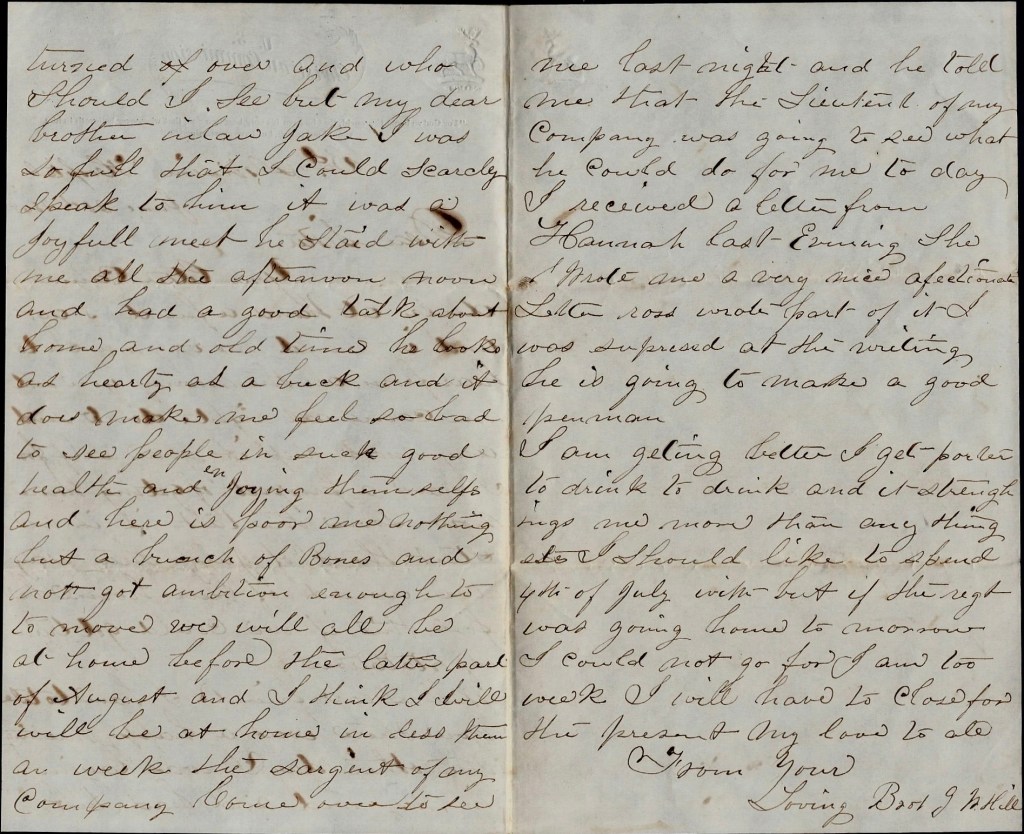 turned of over and who
Should I See but my dear
brother inlaw Jake I was
so full that I Could Scarcly
Speak to him it was a
Joyfull meet he Staid with
me all the afternoon noon
and had a good talk about
home and old time he looks
as hearty as a buck and it
dos make me feel so bad
to see people in such good
health and enJoying themselfs
and here is poor me nothing
but a bunch of Bones and
not got ambition enough to
to move we will all be
at home before the latter part
of August and I think I will
will be at home in less then
an week the Sargent of my
Company Come over to see
me last night and he told
me that the Lieutent of my
Company was going to see what
he Could do for me to day
I received a letter from
Hannah last Evening She
Wrote me a very nice afectionate
Letter ross wrote part of it I
was suprised at the writing
he is going to make a good
penman
I am geting better I get porter
to drink to drink and it strength
ings me more than any thing
els I Should like to spend
4th of July with but if the regt
was going home to morrow
I could not go for I am too
week I will have to Close for
the present My love to all
From Your
Loving Brot J W Hill